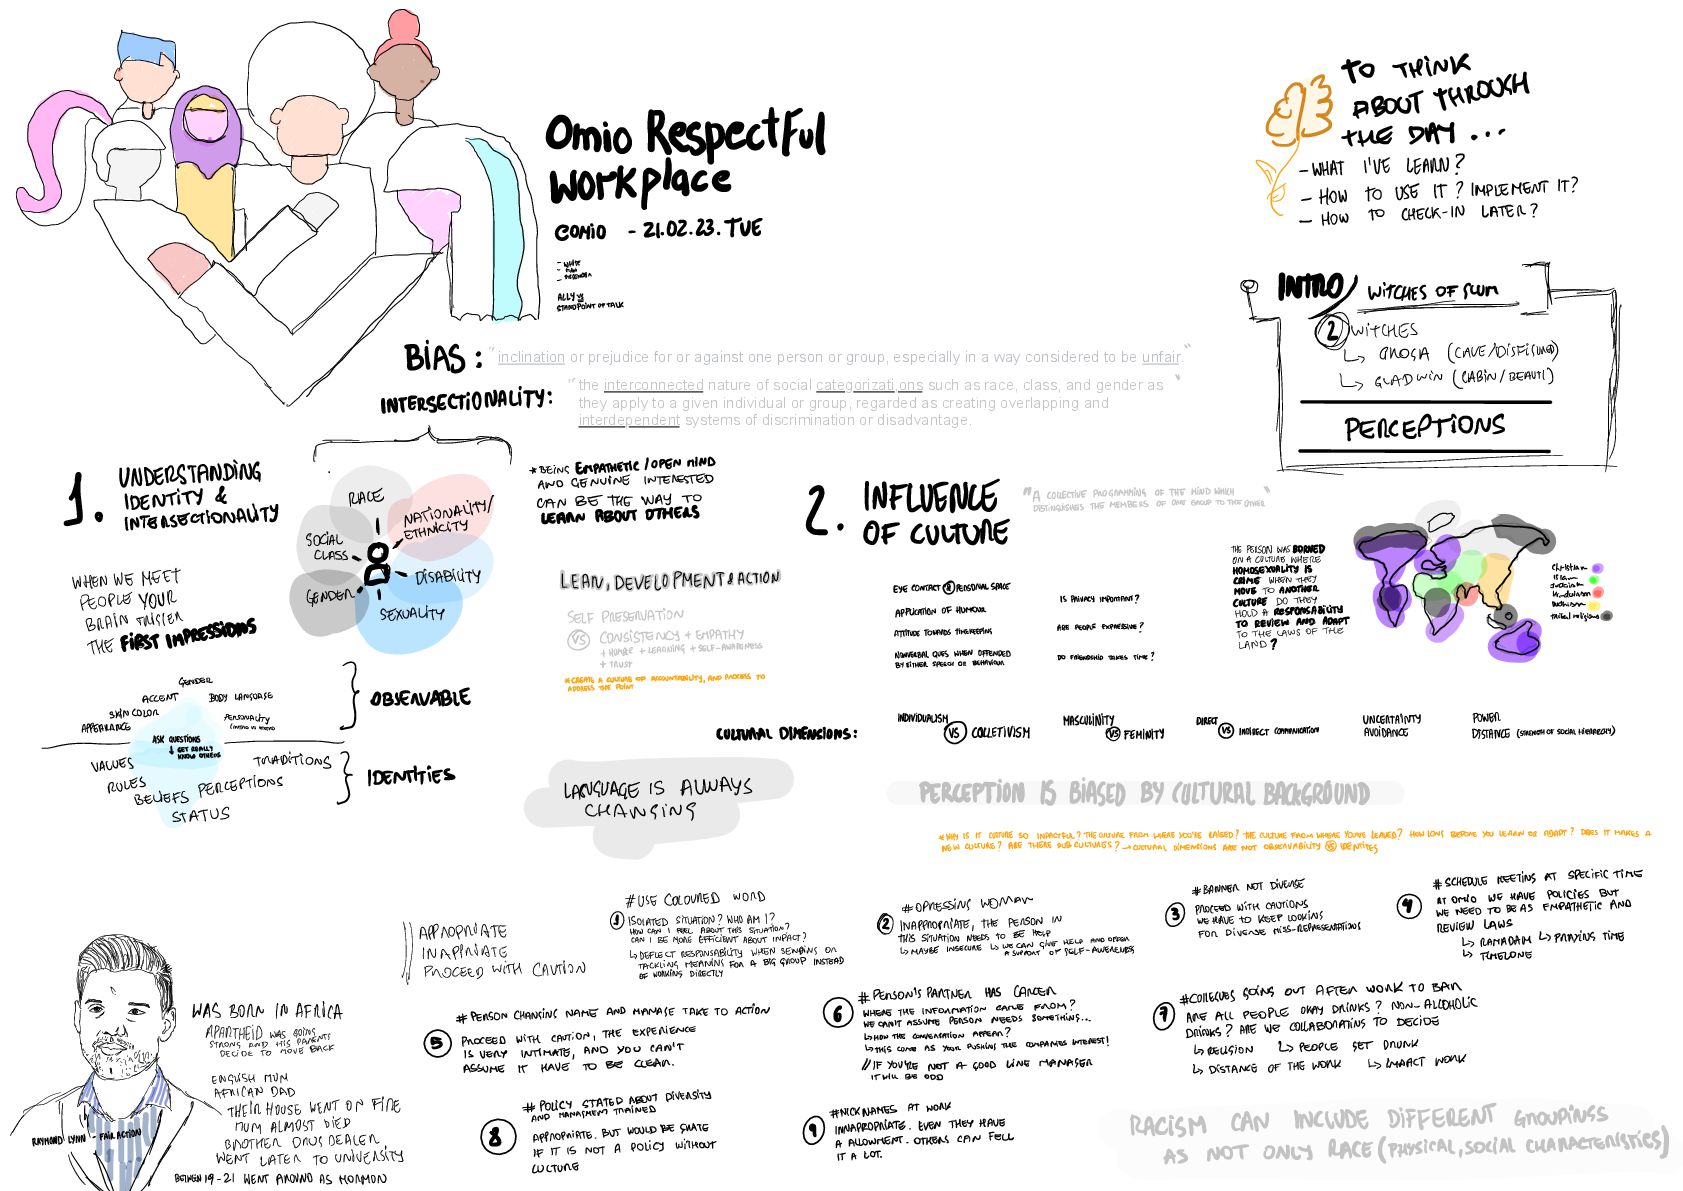 Omio Respectful
Workplace
COMIO - 21.02.23. TUE
- WHITE
- MAN
ALLY VS
STANDPOINT OF TALK
TO THINK
ABOUT THROUGH
THE DAY ...
- WHAT I'VE LEARN?
- HOW TO USE IT? IMPLEMENT IT?
- HOW TO CHECK-IN LATER?
INTRO/ WITCHES OF SLUM
2 WITCHES
↳ GROGA (CAVE/DISFIGURED)
↳ GLADWIN (CABIN/BEAUTI)
PERCEPTIONS
BIAS: "inclination or prejudice for or against one person or group, especially in a way considered to be unfair."
INTERSECTIONALITY: "the interconnected nature of social categorizati,ons such as race, class, and gender as
they apply to a given individual or group, regarded as creating overlapping and
interdependent systems of discrimination or disadvantage.
1. UNDERSTANDING
IDENTITY &
INTERSECTIONALITY
WHEN WE MEET
PEOPLE YOUR
BRAIN TRIGGER
THE FIRST IMPRESSIONS
RACE
NATIONALITY/
ETHNICITY
SOCIAL
CLASS
DISABILITY
GENDER
SEXUALITY
* BEING EMPATHETIC/OPEN MIND
AND GENUINE INTERESTED
CAN BE THE WAY TO
LEARN ABOUT OTHERS
LEAN, DEVELOPMENT & ACTION
SELF PRESERVATION
VS CONSISTENCY + EMPATHY
+ HUMOR + LEARNING + SELF-AWARENESS
+ TRUST
* CREATE A CULTURE OF ACCOUNTABILITY, AND PROCESS TO
ADDRESS THE POINT
GENDER
ACCENT BODY LANGUAGE
SKIN COLOR
APPEARANCE
PERSONALITY
(INTRO VS EXTRO)
OBSERVABLE
ASK QUESTIONS
↓ GET REALLY
KNOW OTHERS
VALUES TRADITIONS
RULES
BELIEFS PERCEPTIONS
STATUS
IDENTITIES
LANGUAGE IS ALWAYS
CHANGING
2. INFLUENCE
OF CULTURE
"A COLLECTIVE PROGRAMMING OF THE MIND WHICH
DISTINGUISHES THE MEMBERS OF ONE GROUP TO THE OTHER"
EYE CONTACT & PERSONAL SPACE
APPLICATION OF HUMOUR
ATTITUDE TOWARDS TIMEKEEPING
NONVERBAL QUES WHEN OFFENDED
BY EITHER SPEECH OR BEHAVIOUR
IS PRIVACY IMPORTANT?
ARE PEOPLE EXPRESSIVE?
DO FRIENDSHIP TAKES TIME?
THE PERSON WAS BORNED
ON A CULTURE WHERE
HOMOSEXUALITY IS
CRIME WHEN THEY
MOVE TO ANOTHER
CULTURE DO THEY
HOLD A RESPONSABILITY
TO REVIEW AND ADAPT
TO THE LAWS OF THE
LAND?
Christian
Islam
Judaism
Hinduism
Budhism
tribal religions
CULTURAL DIMENSIONS:
INDIVIDUALISM
VS COLLETIVISM
MASCULINITY
VS FEMINITY
DIRECT
VS INDIRECT COMMUNICATION
UNCERTAINTY
AVOIDANCE
POWER
DISTANCE (STRENGTH OF SOCIAL HIERARCHY)
PERCEPTION IS BIASED BY CULTURAL BACKGROUND
* WHY IS IT CULTURE SO IMPACTFUL? THE CULTURE FROM WHERE YOU'RE RAISED? THE CULTURE FROM WHERE YOU'VE LEAVED? HOW LONG BEFORE YOU LEARN OR ADAPT? DOES IT MAKES A
NEW CULTURE? ARE THERE SUB CULTURES? → CULTURAL DIMENSIONS ARE NOT OBSERVABILITY VS IDENTITES
APPROPRIATE
INAPRIATE
PROCEED WITH CAUTION
# USE COLOURED WORD
1 ISOLATED SITUATION? WHO AM I?
HOW CAN I FEEL ABOUT THIS SITUATION?
CAN I BE MORE EFFICIENT ABOUT IMPACT?
↳ DEFLECT RESPONSABILITY WHEN SENDING OR
TACKLING MEANING FOR A BIG GROUP INSTEAD
OF WORKING DIRECTLY
# OPRESSING WOMAN
2 INAPPROPRIATE, THE PERSON IN
THIS SITUATION NEEDS TO BE HELP
↳ MAYBE INSECURE ↳ WE CAN GIVE HELP AND OFFER
A SUPPORT OF SELF-AWARENESS
# BANNER NOT DIVERSE
3 PROCEED WITH CAUTIONS
WE HAVE TO KEEP LOOKING
FOR DIVERSE MISS-REPRESENTATIONS
# SCHEDULE MEETING AT SPECIFIC TIME
4 AT OMIO WE HAVE POLICIES BUT
WE NEED TO BE AS EMPATHETIC AND
REVIEW LAWS
↳ RAMADAM ↳ PRAYING TIME
↳ TIMEZONE
# PERSON CHANGING NAME AND MANAGE TAKE TO ACTION
5 PROCEED WITH CAUTION, THE EXPERIENCE
IS VERY INTIMATE, AND YOU CAN'T
ASSUME IT HAVE TO BE CLEAR.
# PERSON'S PARTNER HAS CANCER
6 WHERE THE INFORMATION CAME FROM?
WE CAN'T ASSUME PERSON NEEDS SOMETHING...
↳ HOW THE CONVERSATION APPEAR?
↳ THIS COME AS YOUR PUSHING THE COMPANIES INTEREST!
// IF YOU'RE NOT A GOOD LINE MANAGER
IT WILL BE ODD
# COLLEGUES GOING OUT AFTER WORK TO BAR
7 ARE ALL PEOPLE OKAY DRINKS? NON-ALCOHOLIC
DRINKS? ARE WE COLLABORATING TO DECIDE
↳ RELIGION ↳ PEOPLE GET DRUNK
↳ DISTANCE OF THE WORK ↳ IMPACT WORK
# POLICY STATED ABOUT DIVERSITY
AND MANAGMENT TRAINED
8 APPROPRIATE. BUT WOULD BE
IF IT IS NOT A POLICY WITHOUT
CULTURE
# NICKNAMES AT WORK
9 INNAPROPRIATE. EVEN THEY HAVE
A ALLOWMENT. OTHERS CAN FELL
IT A LOT.
WAS BORN IN AFRICA
APARTHEID WAS GOING
STRONG AND HIS PARENTS
DECIDE TO MOVE BACK
ENGLISH MUM
AFRICAN DAD
THEIR HOUSE WENT ON FIRE
MUM ALMOST DIED
BROTHER DRUG DEALER
WENT LATER TO UNIVERSITY
BETWEN 19-21 WENT AROUND AS MORMON
RAYMOND LYNN - FAIR ACTION
RACISM CAN INCLUDE DIFFERENT GROUPINGS
AS NOT ONLY RACE (PHYSICAL, SOCIAL CHARACTERISTICS)